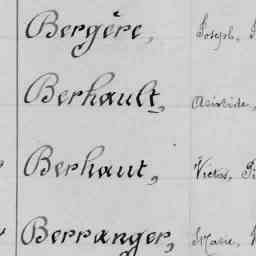 Bergère, Joseph,
Berhault, Aristide,
Berhaut, Victor,
Berranger, Marie,